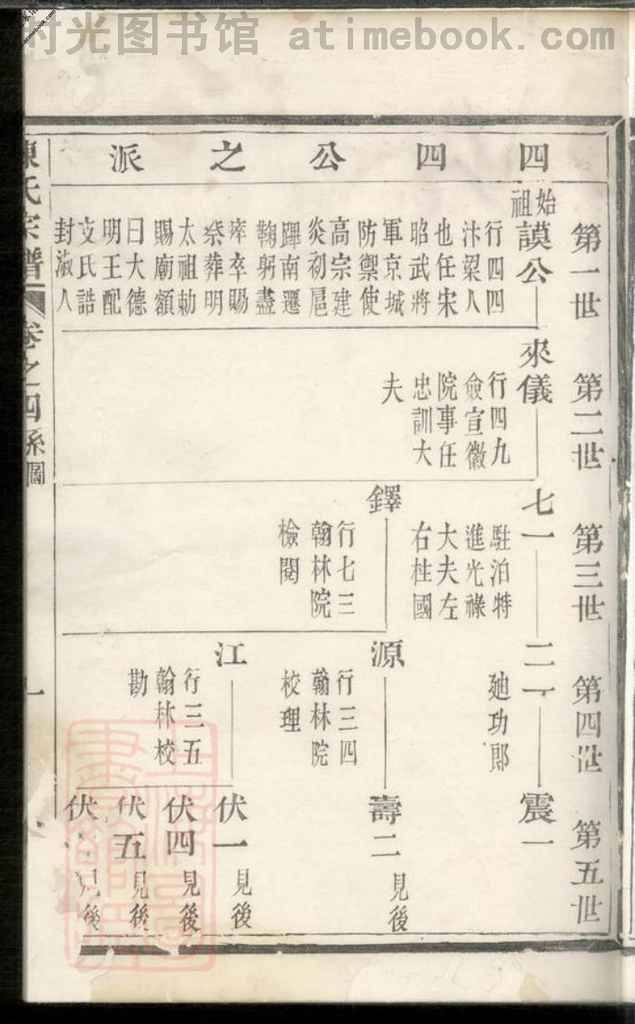 时光图书馆 atimebook.com
四四公之派
第一世
始祖
謨公
行四四
汴梁人
也任宋
昭武將
軍京城
防禦使
高宗建
炎初扈
蹕南遷
鞠躬盡
瘁卒賜
祭葬明
太祖勅
賜廟額
曰大德
明王配
文氏誥
封淑人
第二世
來儀
行四九
僉宣徽
院事任
忠訓大
夫
第三世
七一
駐泊特
進光祿
大夫左
右柱國
鐸
行七三
翰林院
檢閱
第四世
二一
廸功郎
源
行三四
翰林院
校理
江
行三五
翰林校
勘
第五世
震一
壽二 見後
伏一 見後
伏四 見後
伏五 見後
伏 見後
陳氏宗譜
卷之四系圖
一